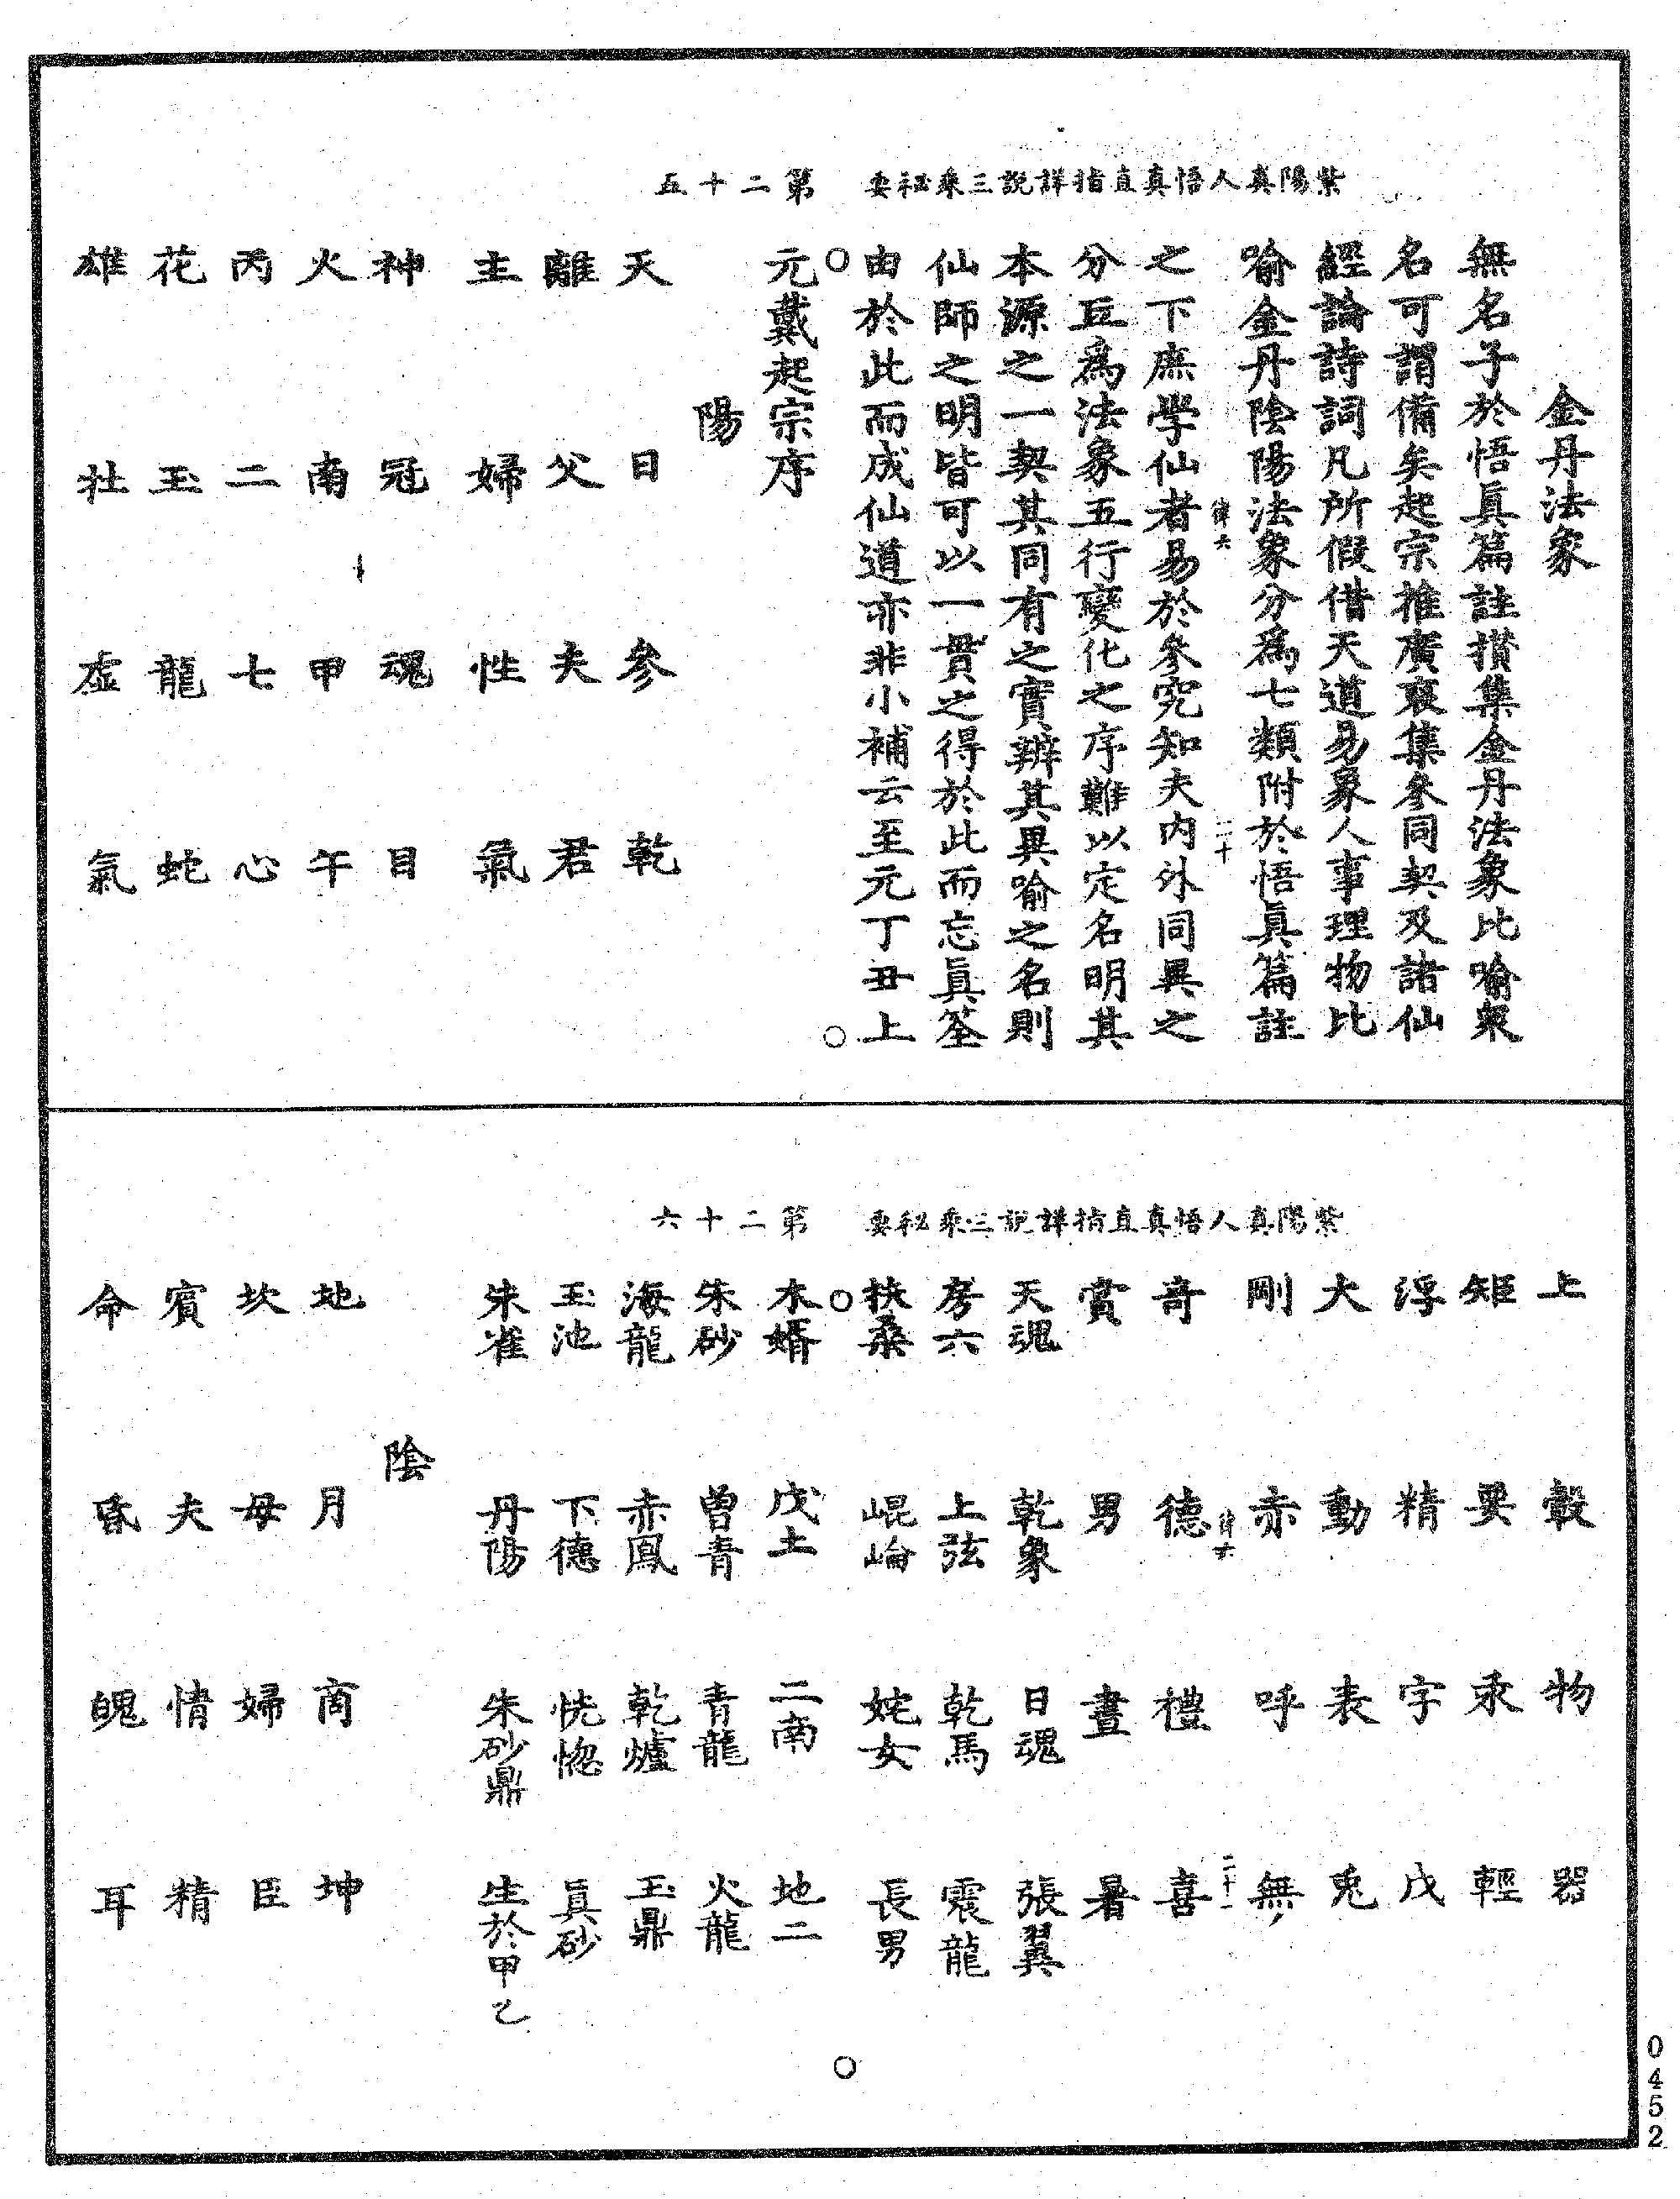 紫陽真人悟真直指詳說三乘秘要　第二十五
金丹法象
無名子於悟眞篇註攢集金丹法象比喻衆
名可謂備矣起宗推廣裒集參同契及諸仙
經論詩詞凡所假借天道易象人事理物比
喻金丹陰陽法象分爲七類附於悟眞篇註
律六　二十
之下庶學仙者易於參究知夫內外同異之
分互爲法象五行變化之序難以定名明其
本源之一契其同有之實辨其異喻之名則
仙師之明皆可以一貫之得於此而忘眞筌
由於此而成仙道亦非小補云至元丁丑上
元戴起宗序
陽
天　日　參　乾
離　父　夫　君
主　婦　性　氣
神　冠　魂　目
火　南　甲　午
丙　二　七　心
花　玉　龍　蛇
雄　牡　虛　氣
紫陽真人悟真直指詳說三乘秘要　第二十六
上　轂　物　器
矩　㷼　汞　輕
浮　精　字　戊
大　動　表　兎
剛　赤　呼　無
律六　二十一
奇　德　禮　喜
賞　男　晝　暑
天魂　乾象　日魂　張翼
房六　上弦　乾馬　震龍
扶桑　崐崘　姹女　長男
木婿　戊土　二南　地二
朱砂　曾青　青龍　火龍
海龍　赤鳳　乾爐　玉鼎
玉池　下德　恍惚　眞砂
朱雀　丹陽　朱砂鼎　生於甲乙
陰
地　月　商　坤
坎　母　婦　臣
賓　夫　情　精
命　昏　魄　耳
0452